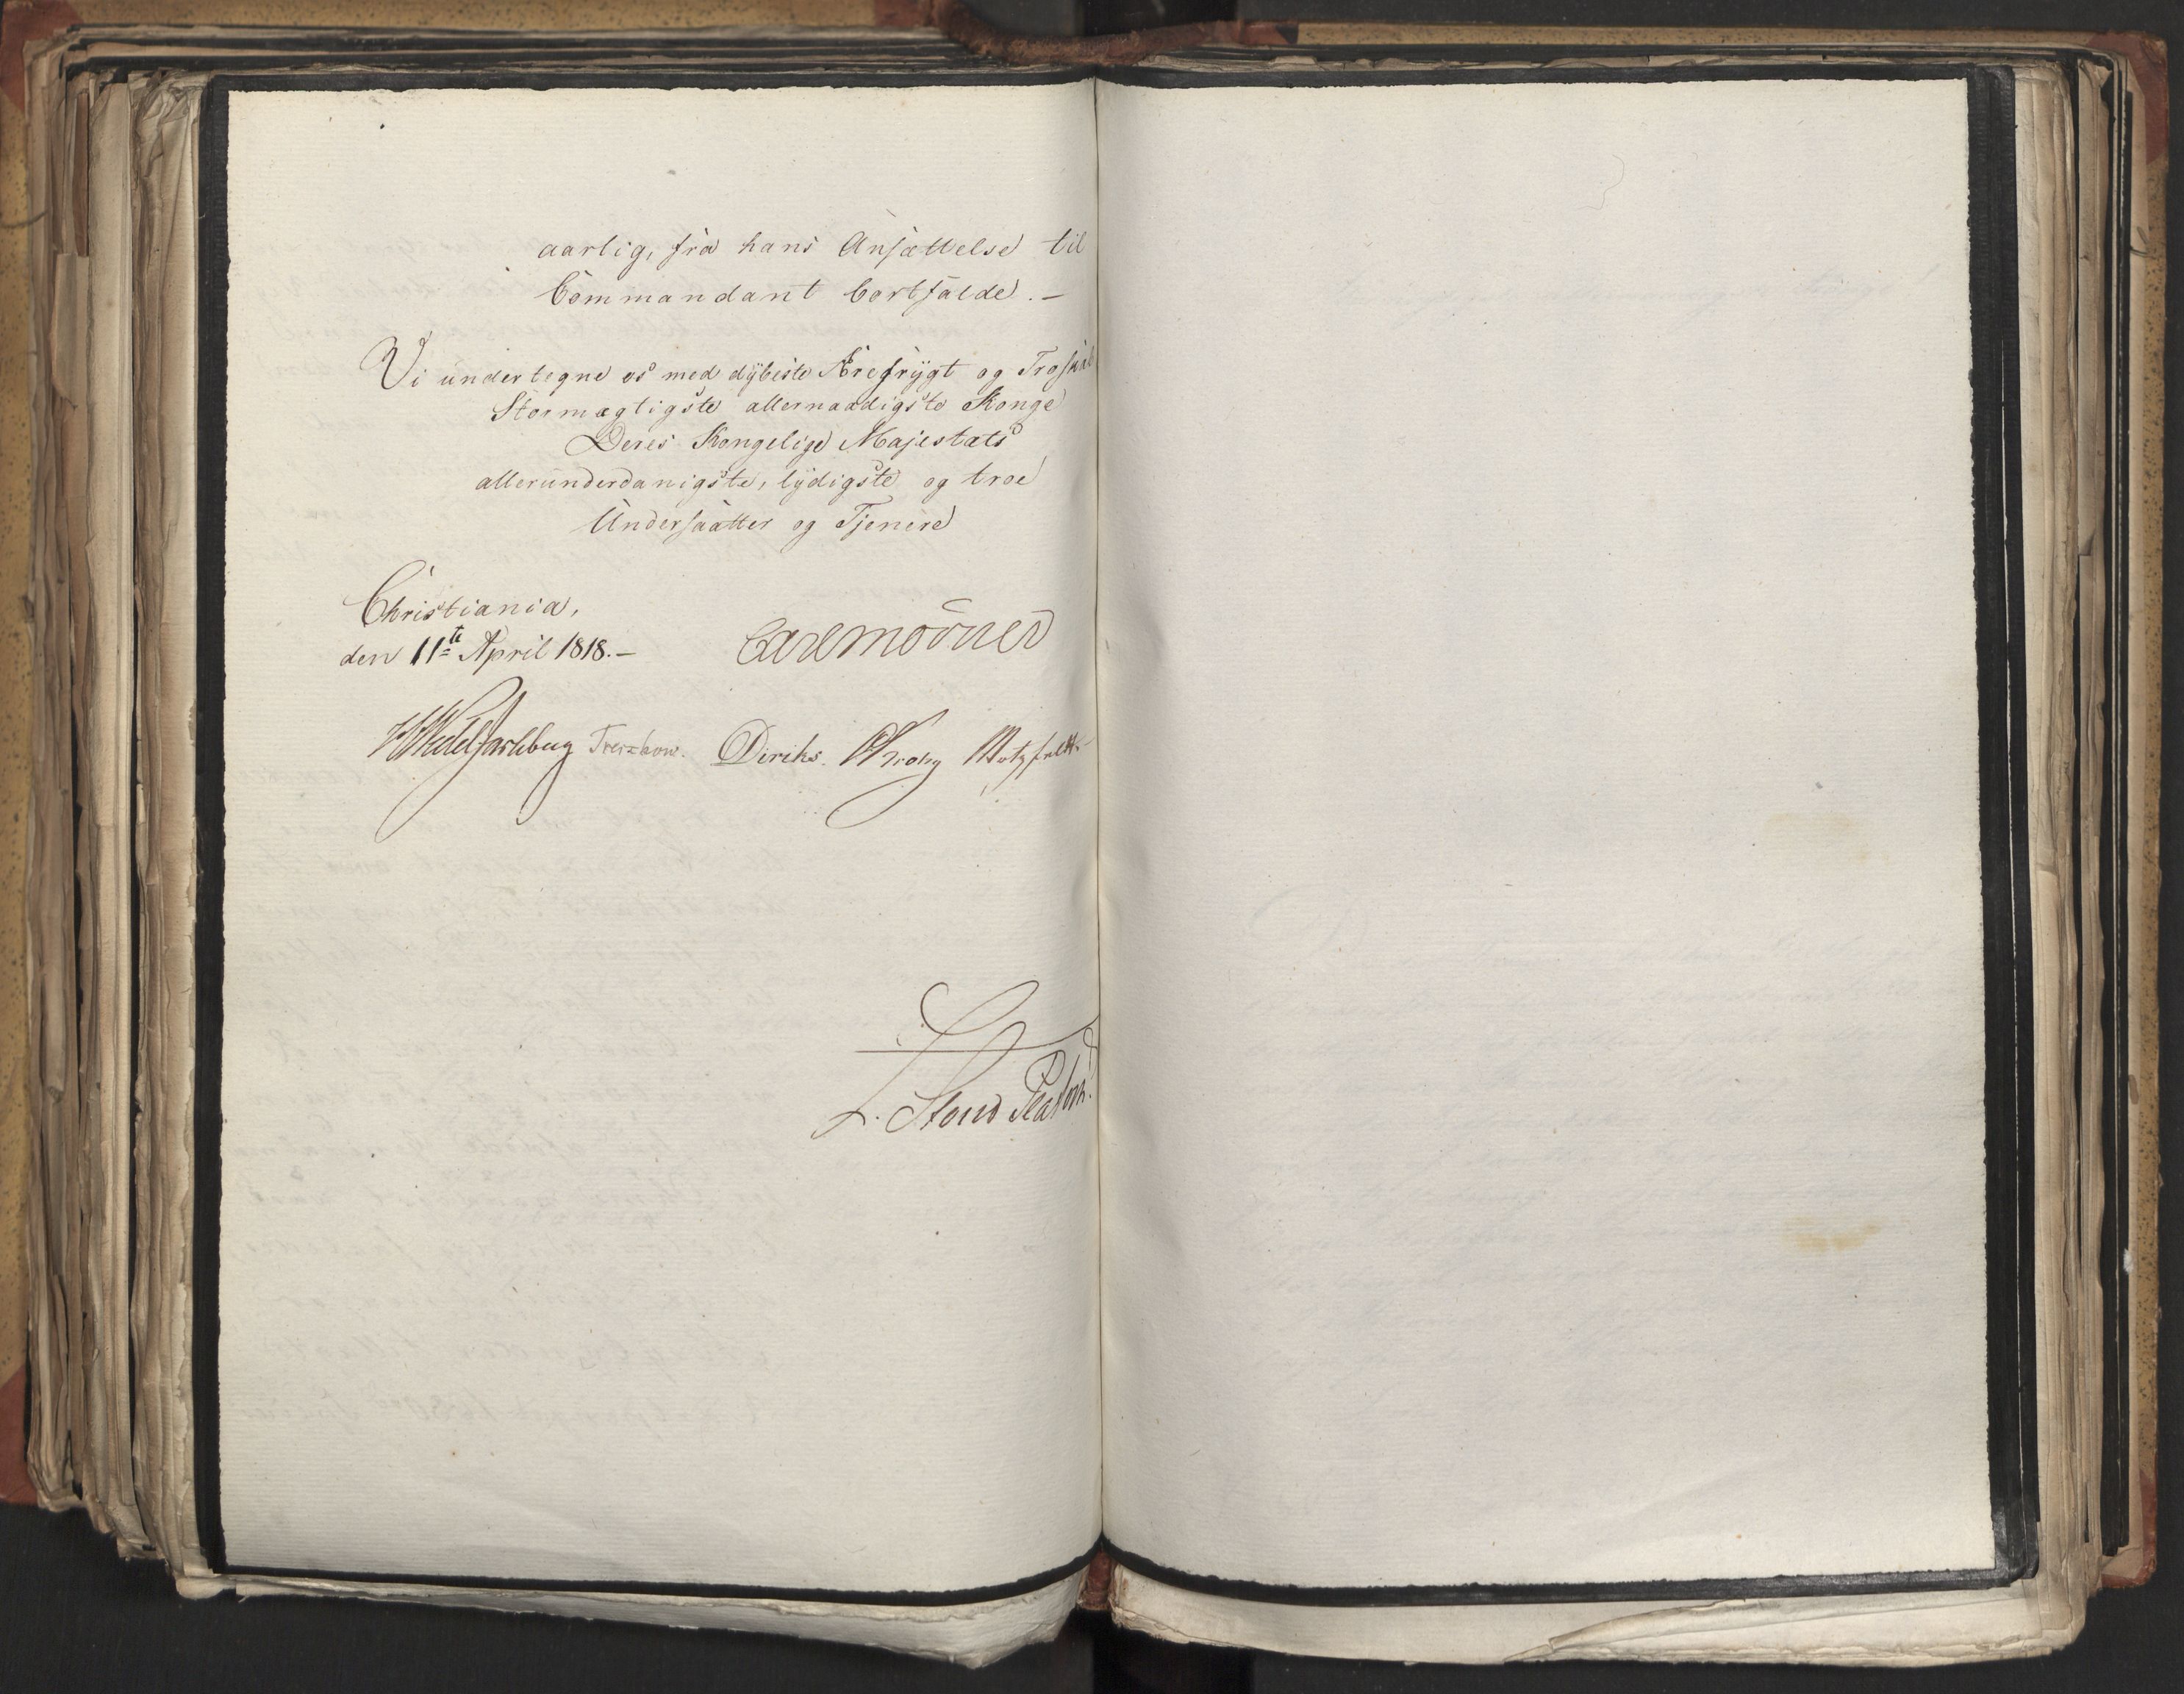 aarlig, fra hans Ansættelse til
Commandant bortfalde. –
Vi undertegne os med dybeste Ærefrygt og Troskab
Stormægtigste allernaadigste Konge
Deres Kongelige Majestæts
allerunderdanigste, lydigste og troe
Undersaatter og Tjenere
Christiania,
den 11te April 1818. –
Carl Mörner
HWedelJarlsberg Treschow. Diriks. CKrohg Motzfeldt
L. Stoud Platou.